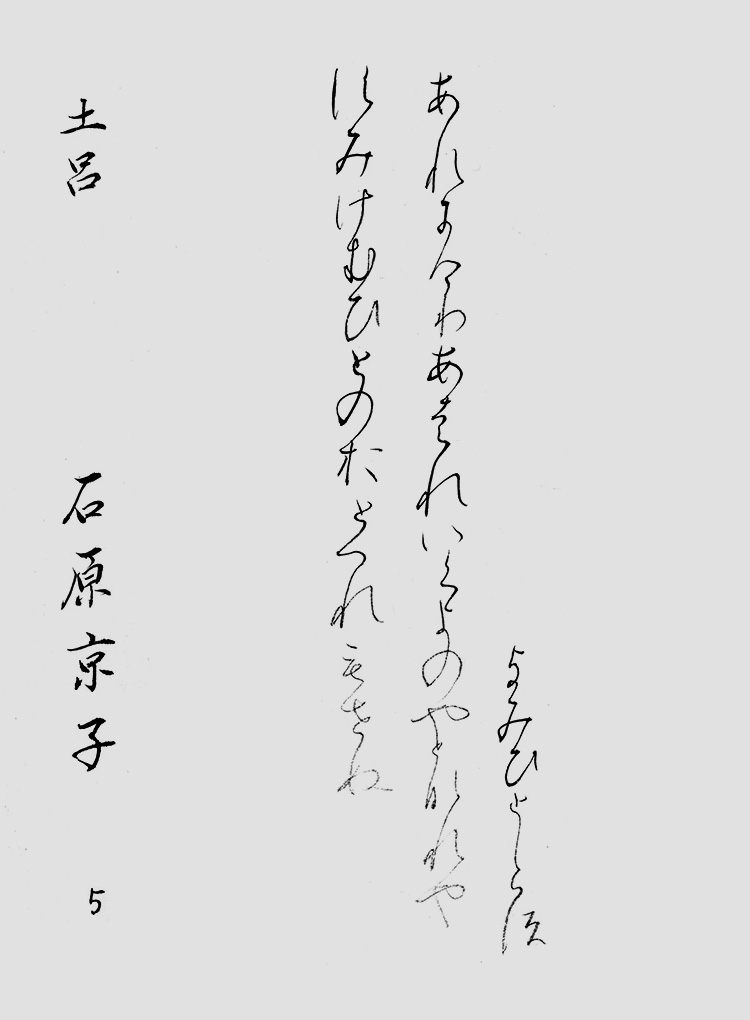 よみひとしらす
あれにけりあはれいくよのやとなれや
すみけむひとのおとつれもせぬ
土呂 石原京子 5